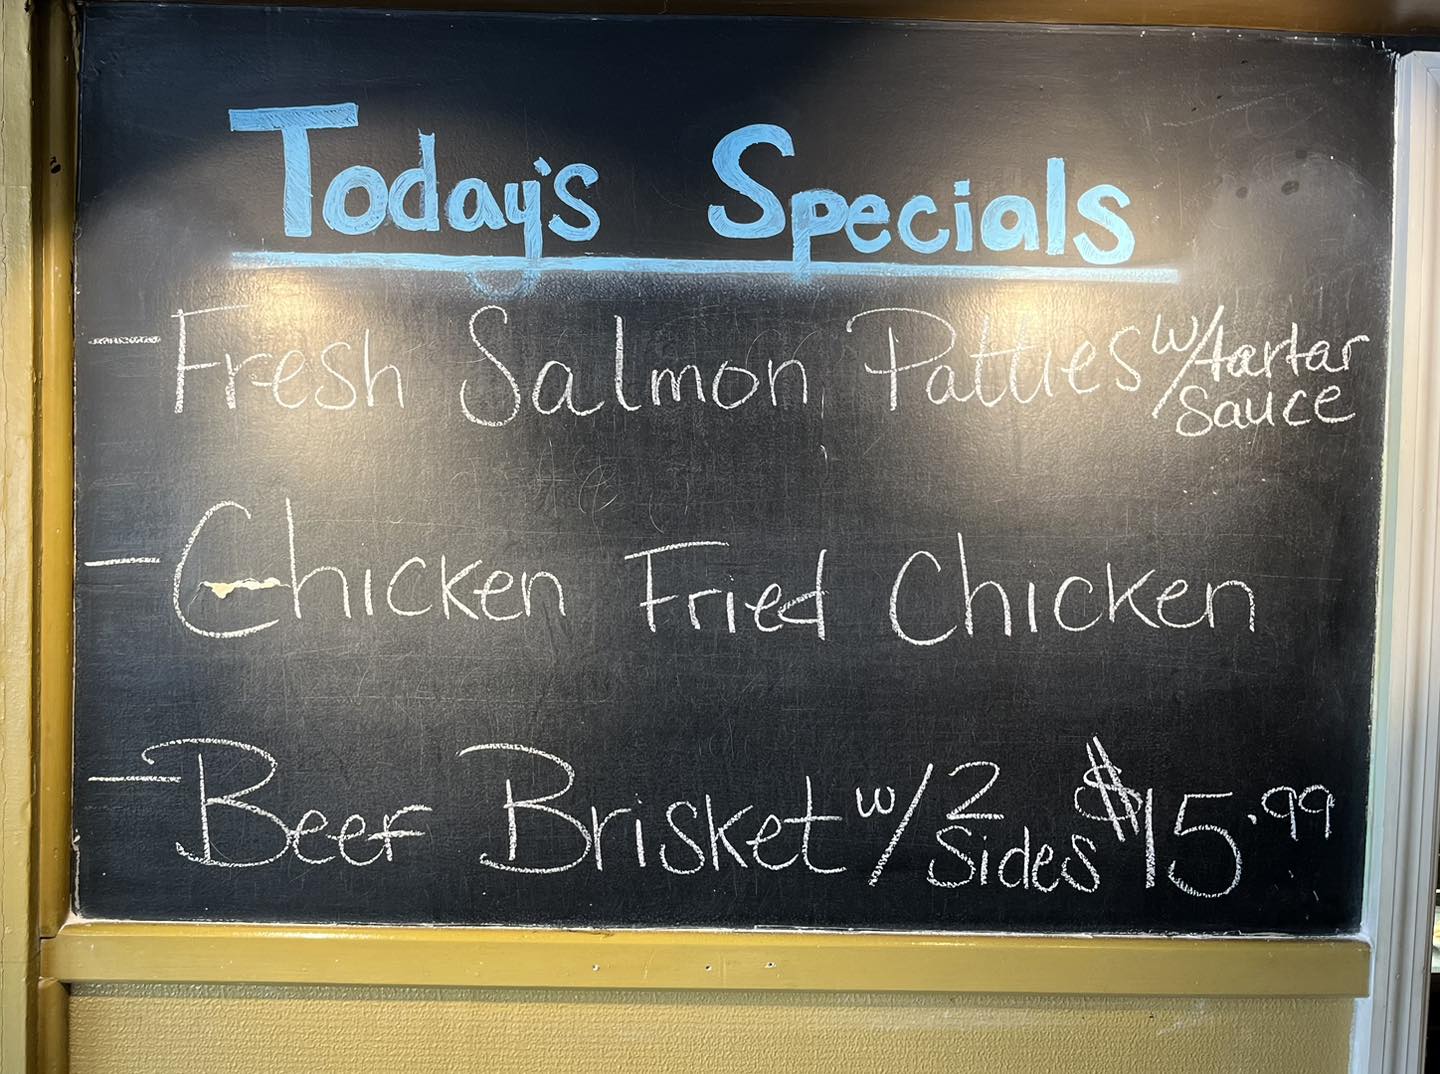 Today's Specials
- Fresh Salmon Patties w/tartar sauce
- Chicken Fried Chicken
- Beef Brisket w/2 Sides $15.99